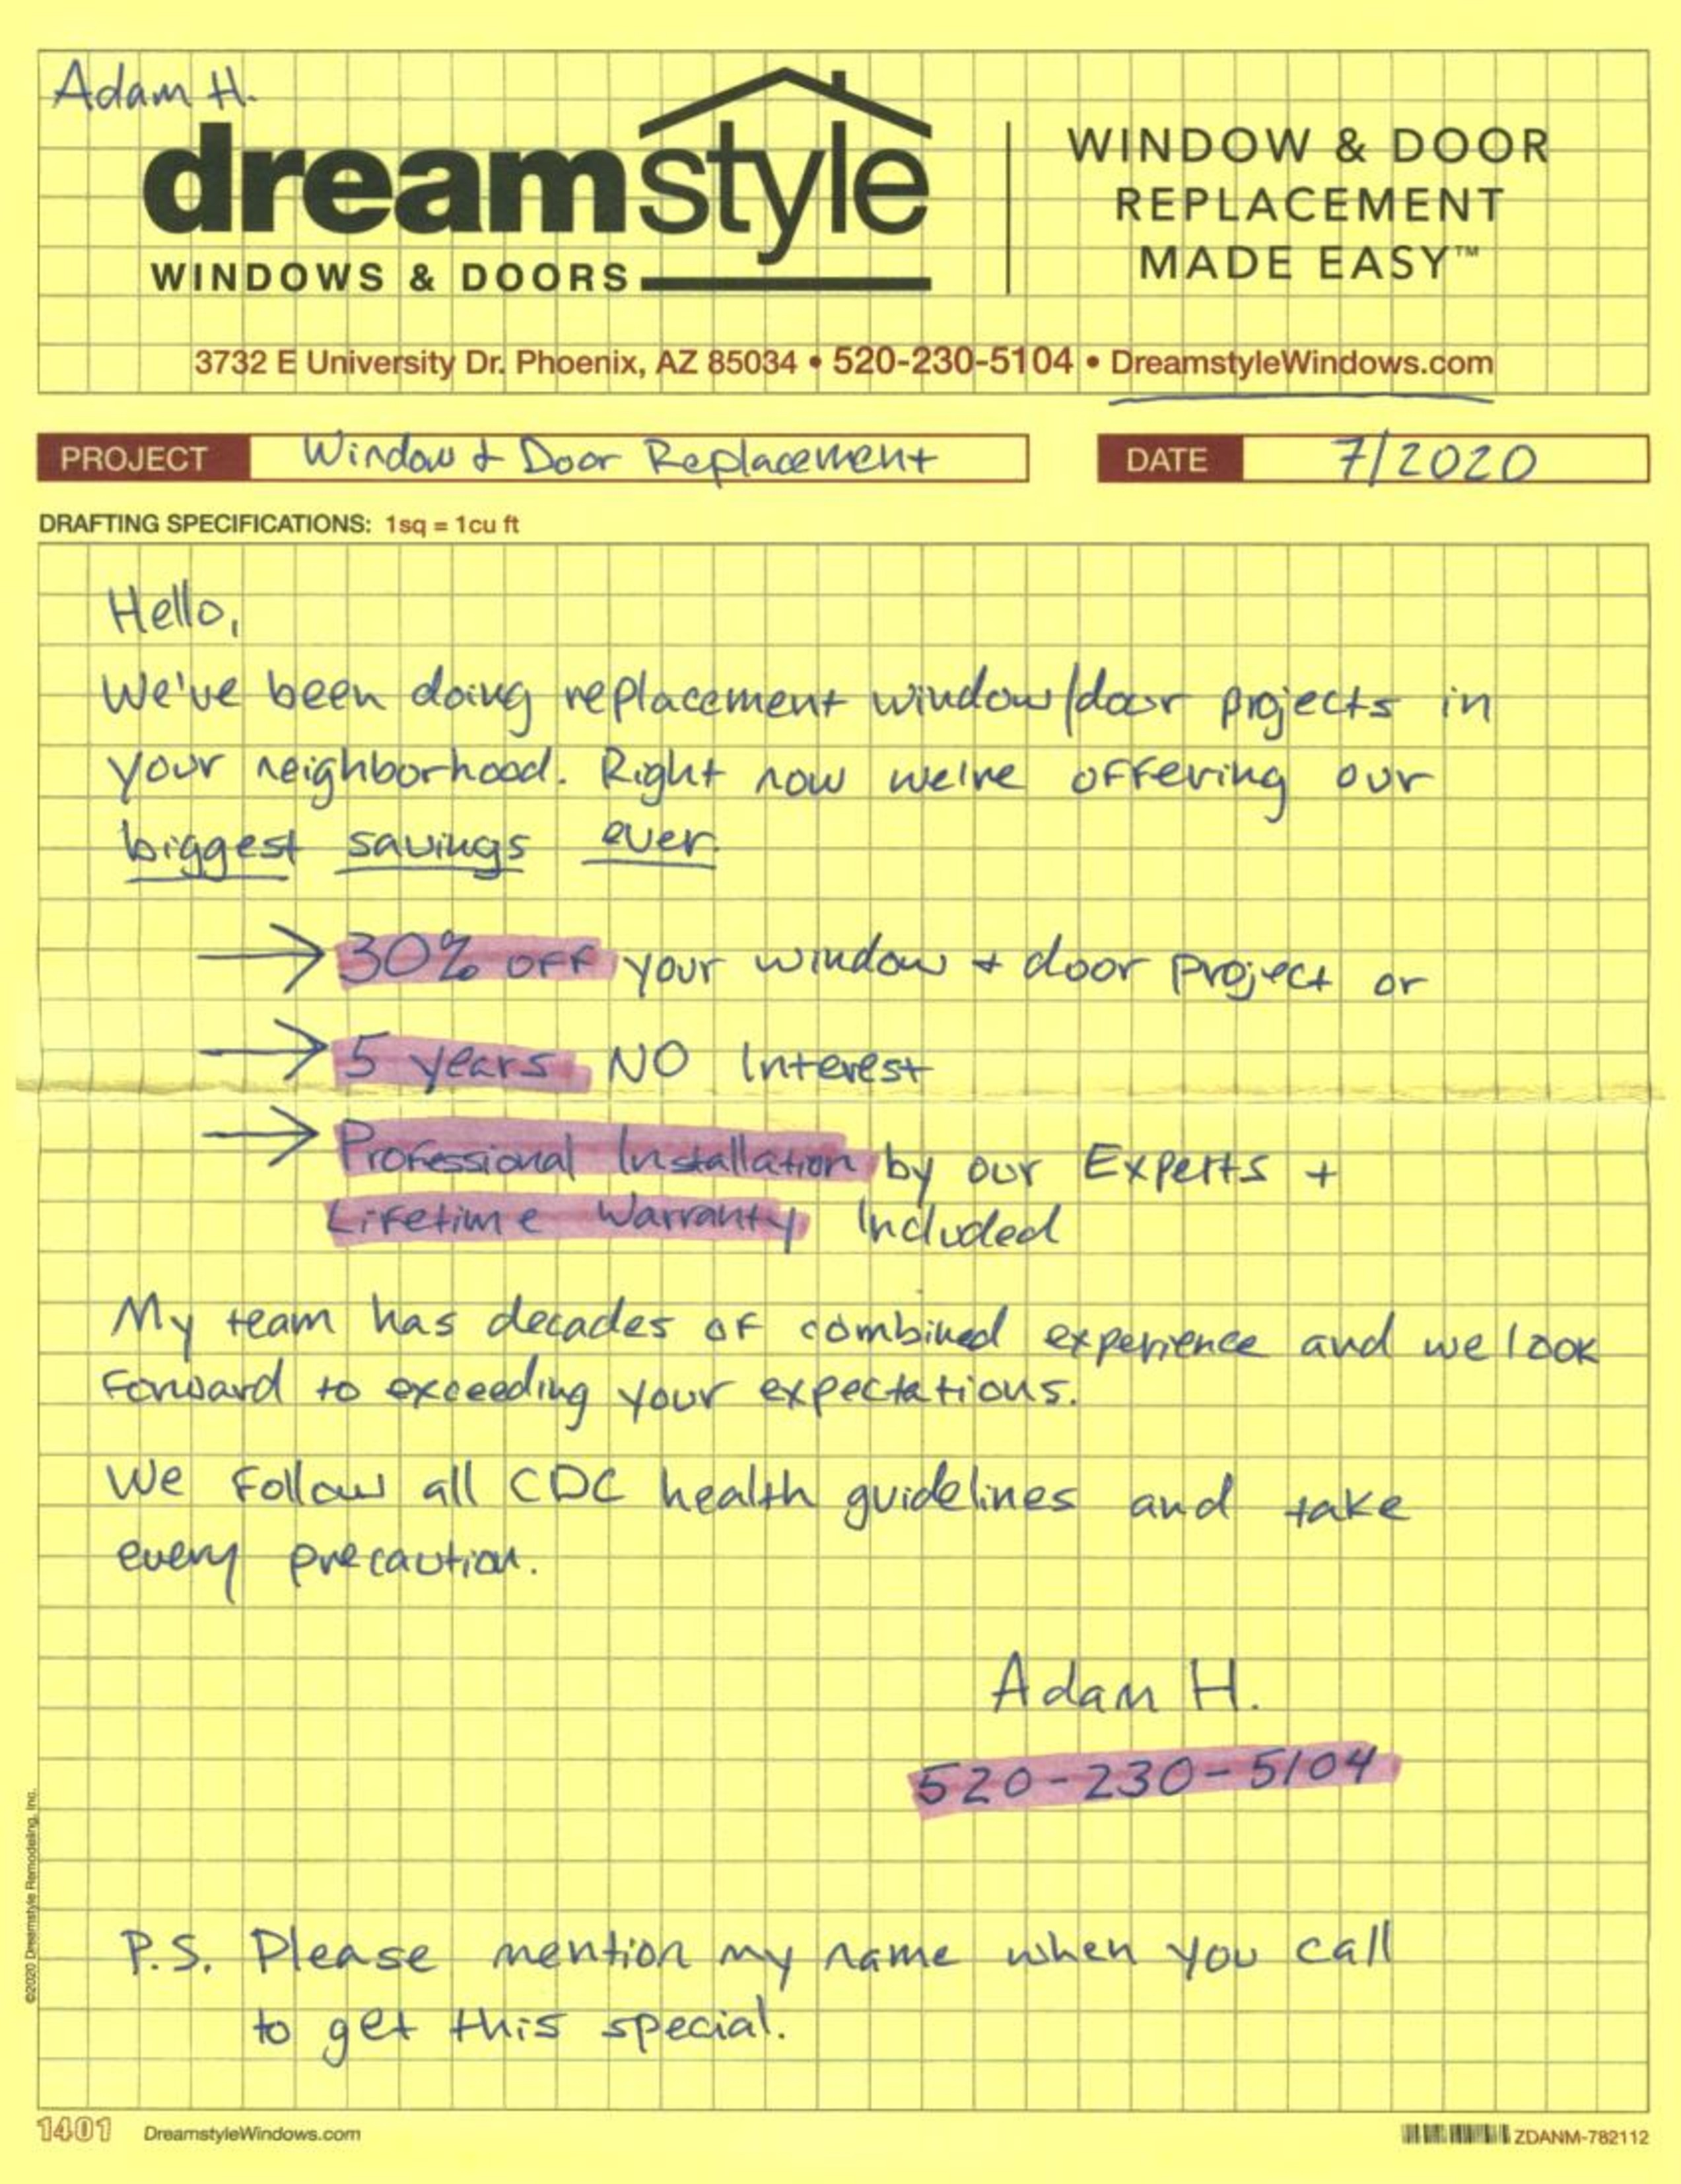 Adam H.
dreamstyle
WINDOWS & DOORS
WINDOW & DOOR
REPLACEMENT
MADE EASY™
3732 E University Dr. Phoenix, AZ 85034 • 520-230-5104 • DreamstyleWindows.com
PROJECT Window & Door Replacement DATE 7/2020
DRAFTING SPECIFICATIONS: 1sq = 1cu ft
Hello,
We've been doing replacement window/door projects in
your neighborhood. Right now we're offering our
biggest savings ever.
→ 30% off your window + door project or
→ 5 years NO Interest
→ Professional Installation by our Experts +
Lifetime Warranty Included
My team has decades of combined experience and we look
forward to exceeding your expectations.
We follow all CDC health guidelines and take
every precaution.
Adam H.
520-230-5104
P.S. Please mention my name when you call
to get this special.
©2020 Dreamstyle Remodeling, Inc.
1401 DreamstyleWindows.com ZDANM-782112